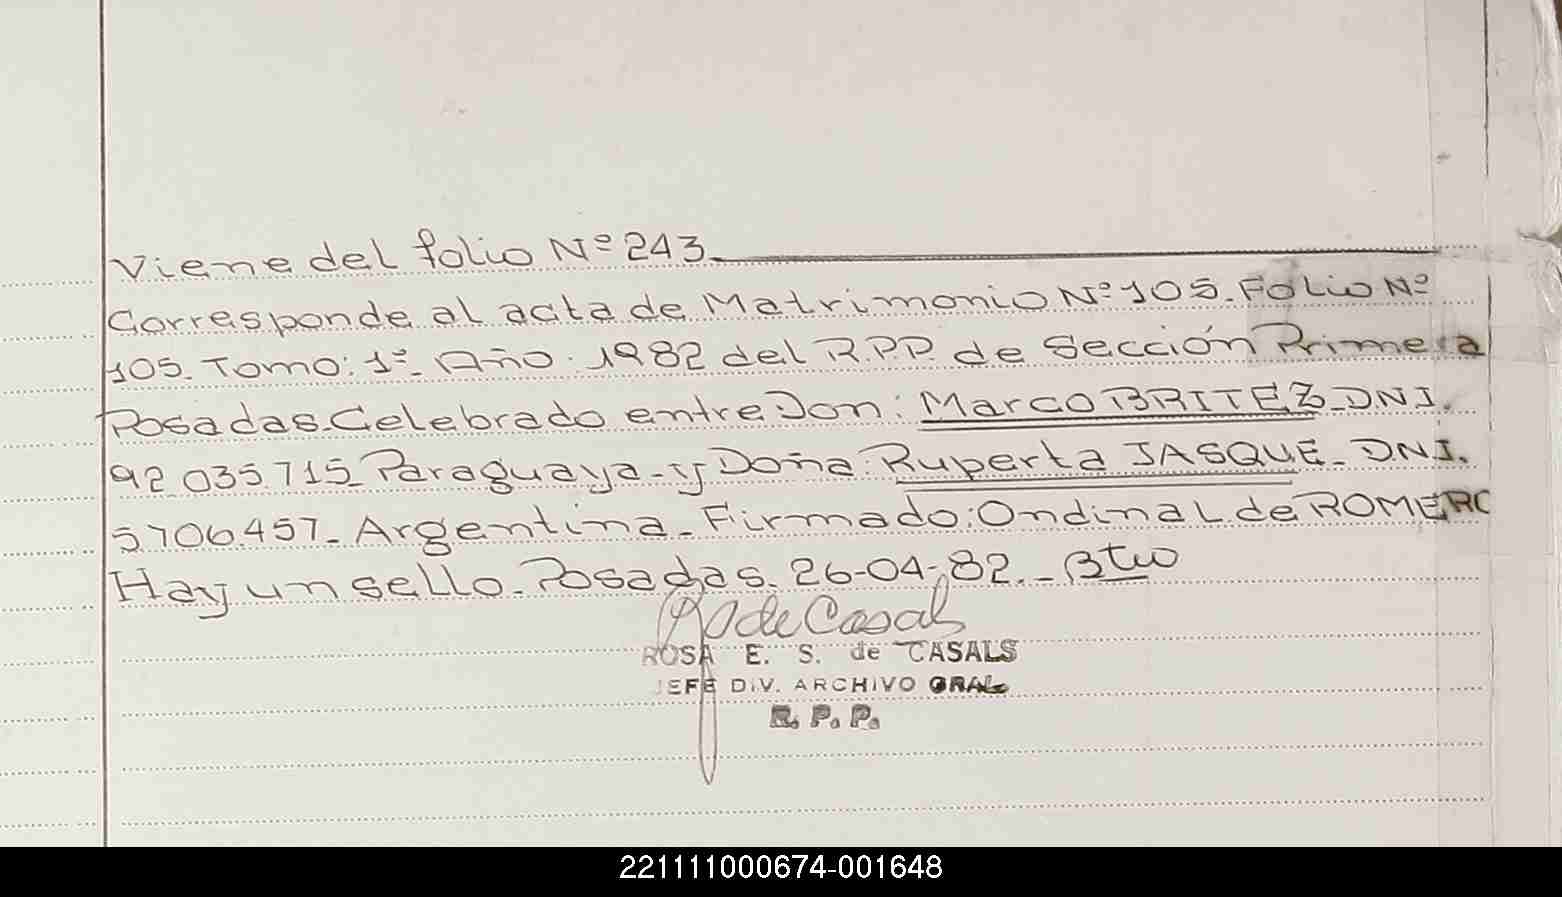 Viene del folio Nº 243.
Corresponde al acta de Matrimonio Nº 105. Folio Nº
105. Tomo: 1º. Año: 1982 del R.P.P. de Sección Primera
Posadas. Celebrado entre Don: Marco BRITEZ. DNI.
92.035.715. Paraguaya - y Doña: Ruperta JASQUE. DNI.
5.706.457. Argentina. Firmado: Ondina L. de ROMERO
Hay un sello. Posadas. 26-04-82.
R de Casals
ROSA E. S. de CASALS
JEFE DIV. ARCHIVO GRAL.
R. P. P.
221111000674-001648